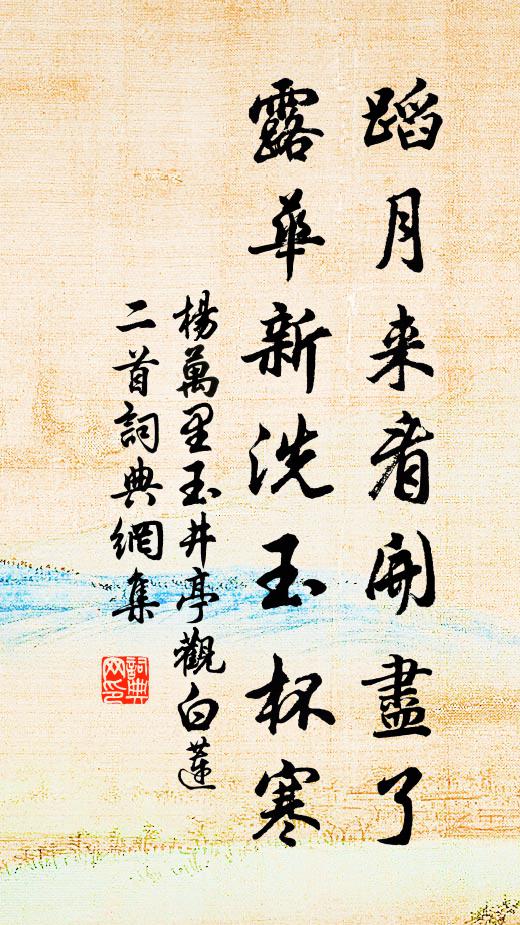 蹈月来看開盡了
露華新洗玉杯寒
楊萬里玉井亭觀白蓮
二首詞典網集
詞典
网印